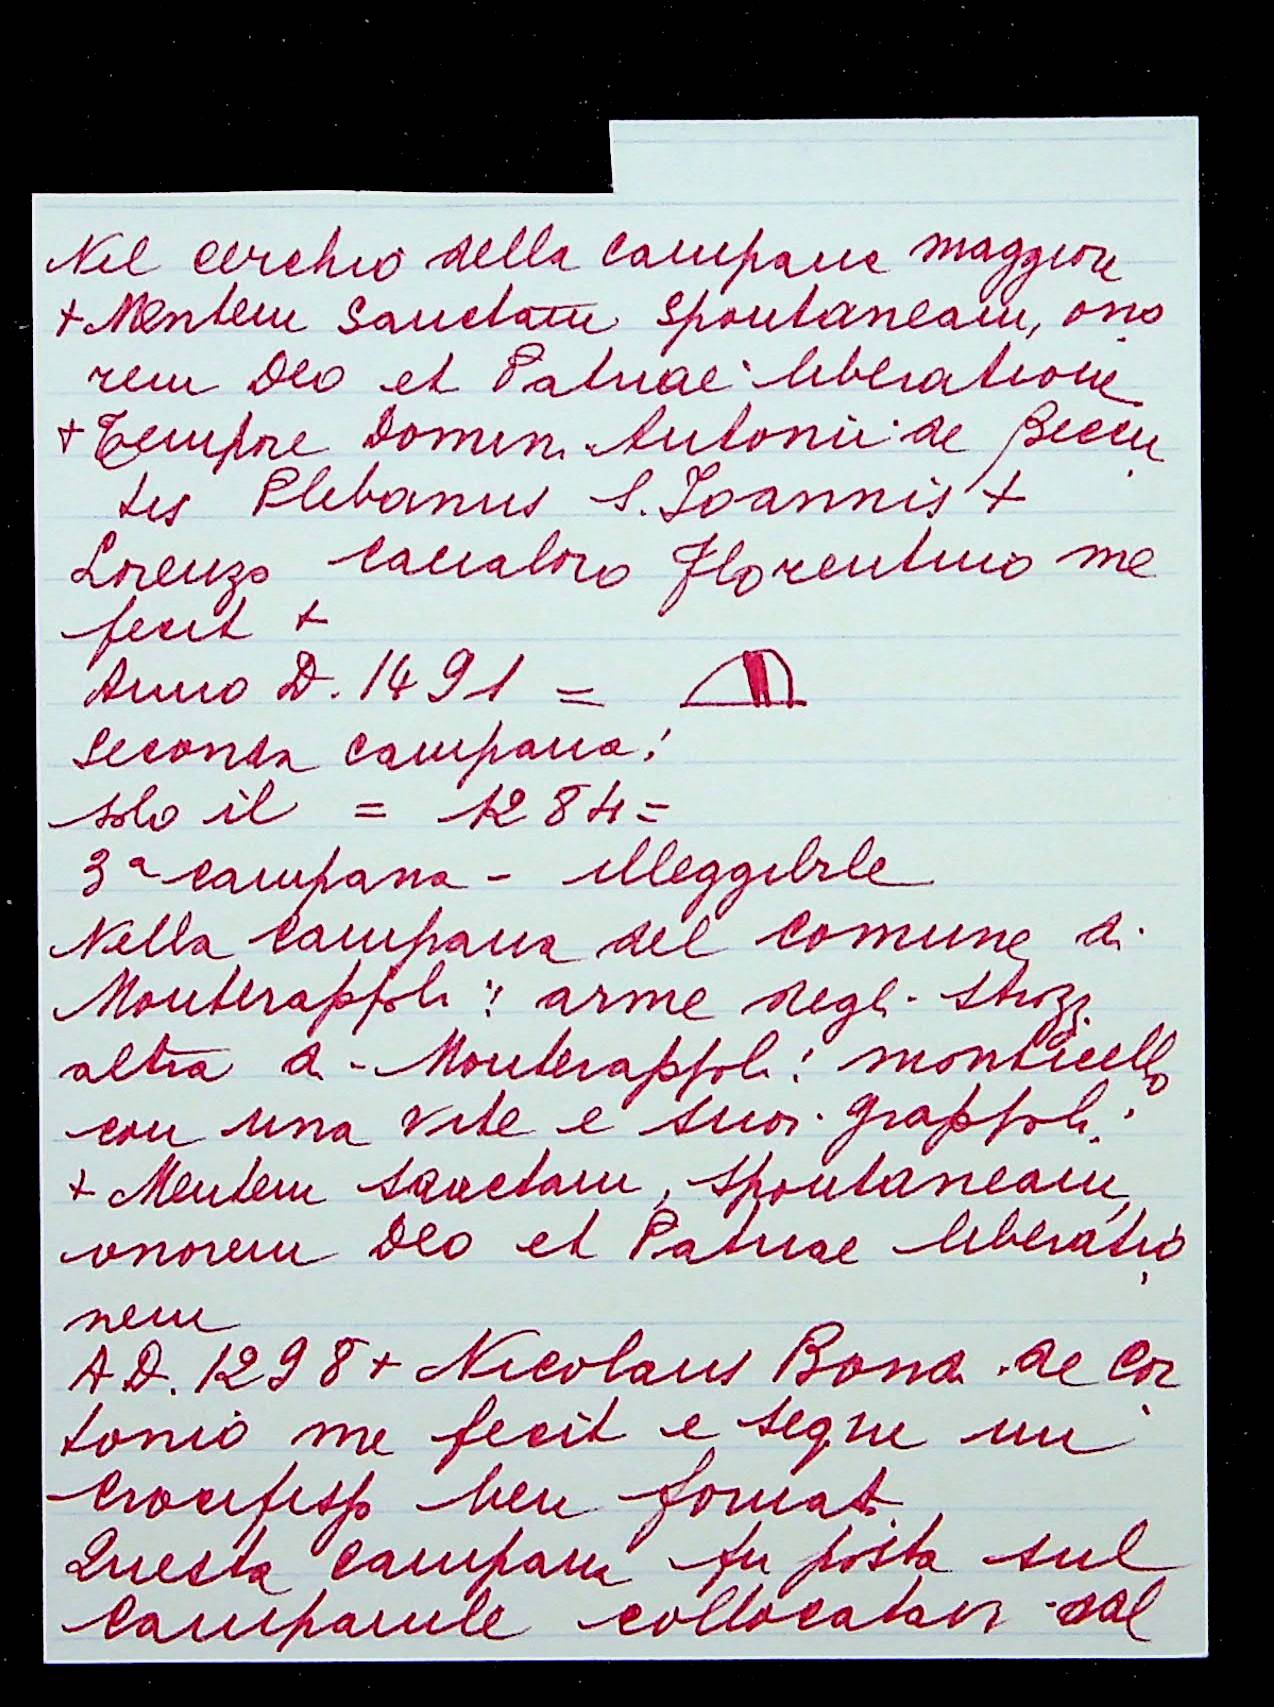 Nel cerchio della campana maggiore
+ Mentem Sanctam spontaneam, ono
rem Deo et Patriae liberatione
+ Tempore Domin. Antonii de Beccu
tis Plebanus S. Joannis +
Lorenzo Florentino me
fecit +
Anno D. 1491 =
Seconda campana:
solo il = 1284 =
3ª campana - illeggibile
Nella campana del comune di
Monterappoli: arme degli Strozzi
altra di Monterappoli: monticello
con una vite e suoi grappoli:
+ Mentem sanctam, spontaneam,
onorem Deo et Patriae liberatio
nem
A D. 1298 + Nicolaus Bond. de Cor
tonio me fecit e segue un
Crocifisso ben formato
Questa campana fu posta sul
Campanile collocatavi dal